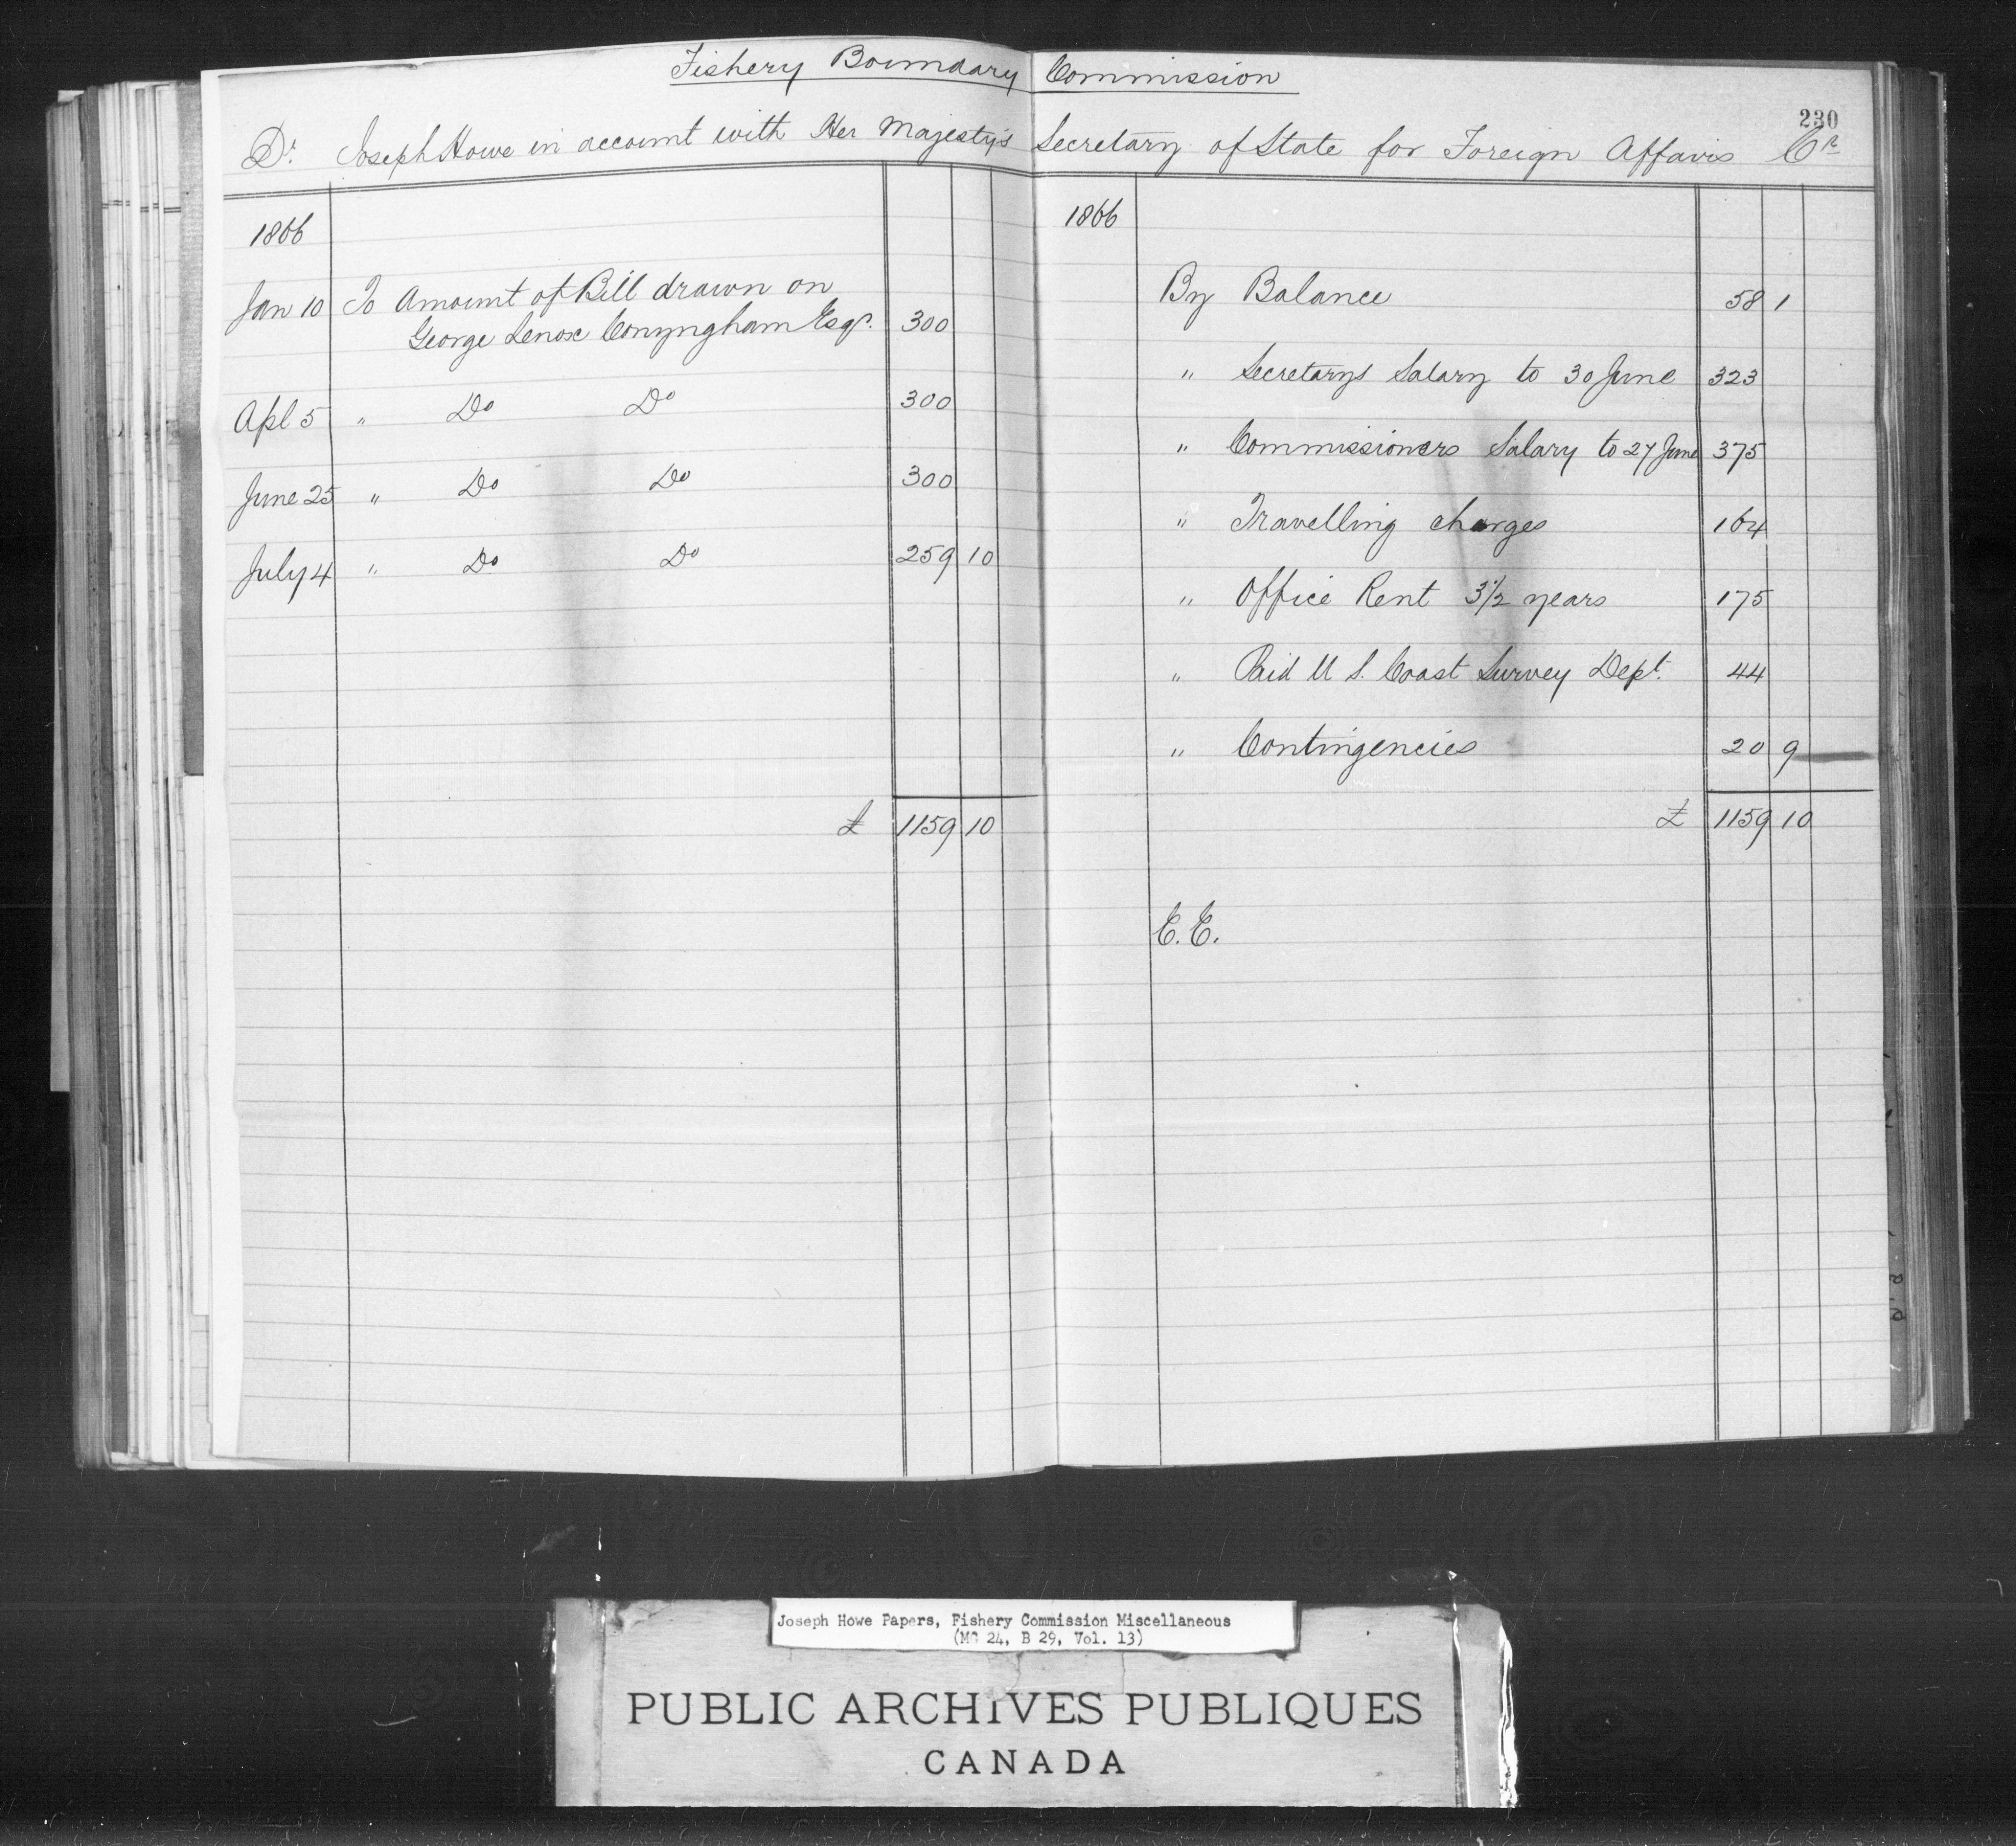 Fishery Boundary Commission
230
Dr. Joseph Howe in account with Her Majesty's Secretary of State for Foreign Affairs Cr
1866
Jan 10 To Amount of Bill drawn on
George Lenox Conyngham Esqr. 300
Apl 5 " Do Do 300
June 25 " Do Do 300
July 4 " Do Do 259 10
£ 1159 10
1866
By Balance 58 1
" Secretarys Salary to 30 June 323
" Commissioners Salary to 27 June 375
" Travelling charges 164
" Office Rent 3 1/2 years 175
" Paid U S. Coast Survey Dept. 44
" Contingencies 20 9
£ 1159 10
E. E.
Joseph Howe Papers, Fishery Commission Miscellaneous
(MG 24, B 29, Vol. 13)
PUBLIC ARCHIVES PUBLIQUES
CANADA